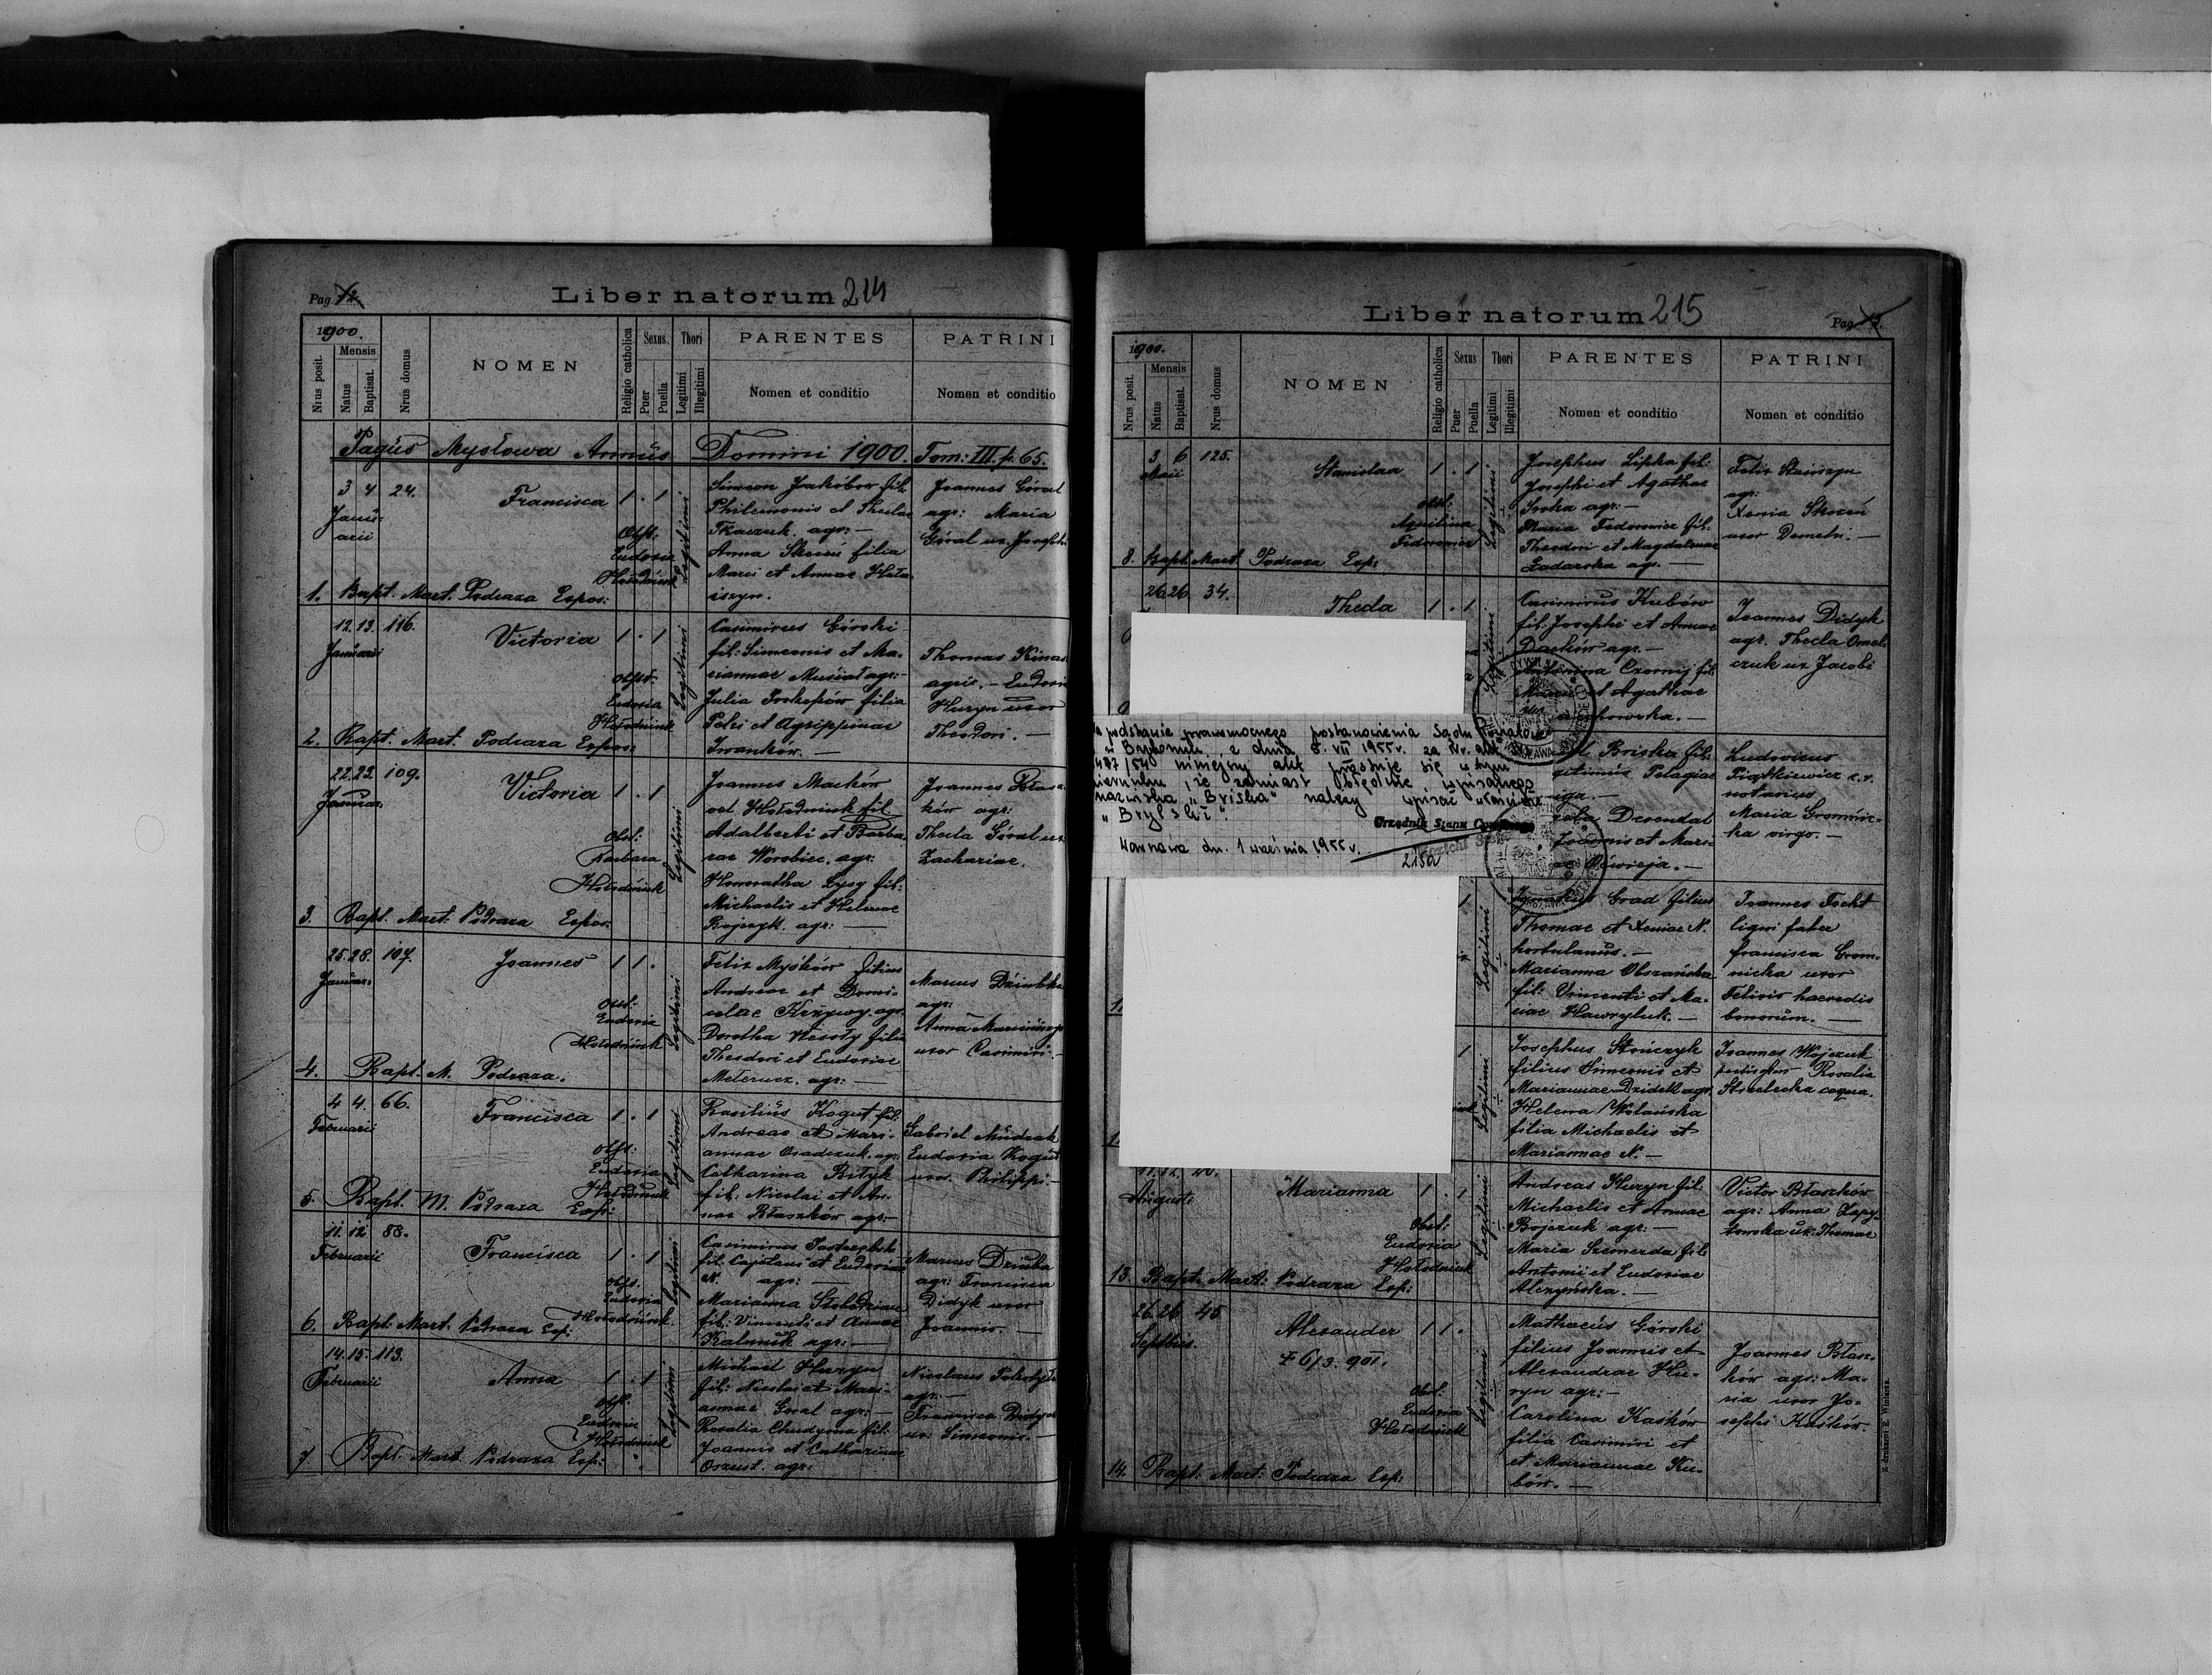 Pag. 72.
Liber natorum 214
1900.
Nrus posit.
Mensis
Natus
Baptisat.
Nrus domus
NOMEN
Religio catholica
Sexus
Puer
Puella
Thori
Legitimi
Illegitimi
PARENTES
Nomen et conditio
PATRINI
Nomen et conditio
Pagus Mysłowa Annus Domini 1900. Tom: III. p. 65.
3 4 24.
Januarii
Francisca 1 . 1
Obst:
Eudoxia
Hołodniuk
Legitimi
Simeon Jakubów fil.
Philemonis et Theclae
Tkaczuk. agr: —
Anna Skoceń filia
Marci et Annae
Joannes Góral
agr: Maria
Góral ux. Josephi
1. Bapt. Mart. Podraza Expos:
12. 13. 116.
Januarii
Victoria 1 . 1
Obst:
Eudoxia
Hołodniuk
Legitimi
Casimirus Górski
fil: Simeonis et Ma-
riannae Musiał agr: —
Julia Prokopów filia
Petri et Agrippinae
Iwanków. —
Thomas Kinas
agric. — Eudoxia
Huryn uxor
Theodori. —
2. Bapt. Mart. Podraza Expos:
22. 23. 109.
Januar.
Victoria 1 . 1
Obst:
Barbara
Hołodniuk
Legitimi
Joannes Maćków
vel Hołodniuk fil.
Adalberti et Barba-
rae Worobiec. agr:
Honoratha Łysy fil:
Michaelis et Helenae
Bojczyk. agr: —
Joannes Błasz-
ków agr:
Thecla Góral ux.
Zachariae.
3. Bapt. Mart. Podraza Expos:
25. 28. 107.
Januar:
Joannes 1 1 .
Obst:
Eudoxia
Hołodniuk
Legitimi
Felix Myśków filius
Andreae et Domi-
celae Krzywy. agr.
Dorotha Wesoły filia
Theodori et Eudoxiae
agr: —
Marcus Dziubka
agr:
Anna
uxor Casimiri. —
4. Bapt. M. Podraza.
4 4. 66.
Februarii
Francisca 1 . 1
Obst:
Eudoxia
Hołodniuk
Legitimi
Basilius Kogut fil:
Andreae et Mari-
annae Osadczuk. agr.
Catharina Bityk
fil: Nicolai et An-
nae Błaszków agr: —
Gabriel Mudrak
Eudoxia Kogut
uxor. Philippi. —
5. Bapt. M. Podraza Exp:
11. 12 88.
Februarii
Francisca 1 . 1
Obst.
Eudoxia
Hołodniuk.
Legitimi
Casimirus
fil. et Eudoxiae
N. agr: —
Marianna
fil: Vincenti et Annae
agr: —
Marcus Dziuba
agr: Francisca
Didyk uxor
Joannis. —
6. Bapt. Mart. Podraza Exp:
14. 15. 113.
Februarii
Anna 1 . 1
Obst.
Eudoxia
Hołodniuk
Legitimi
Michael Huryn
fil: Nicolai et Mari-
annae Goral agr: —
Rosalia Chudyma fil:
Joannis et Catharinae
Oszust. agr:
Nicolaus
agr: —
Francisca Didyk
ux: Simeonis. —
7 Bapt. Mart. Podraza Exp:
Liber natorum 215
Pag.
1900.
Nrus posit.
Mensis
Natus
Baptisat.
Nrus domus
NOMEN
Religio catholica
Sexus
Puer
Puella
Thori
Legitimi
Illegitimi
PARENTES
Nomen et conditio
PATRINI
Nomen et conditio
3 6 125.
Maii
Stanislaa 1 . 1
Obst:
Aquilina
Fedorowicz
Legitimi
Josephus Lipka fil:
Josephi et Agathae
Sroka agr: —
Maria Fedorowicz fil.
Theodori et Magdalenae
Zadarska agr. —
Felix Stańszyn
agr:
Xenia Skoceń
uxor Demetri. —
8. Bapt. Mart. Podraza Exp:
26. 26 34.
Thecla 1 . 1
Legitimi
Casimirus Kubów
fil. Josephi et Annae
Daćków agr. —
Czornij fil.
et Agathae
Joannes Didyk
agr. Thecla Omel-
czuk ux Jacobi
Na podstawie prawomocnego postanowienia Sądu Powiatow.
w Bytomiu z dnia 8. VII 1955 r. za Nr. akt
487/54 niniejszy akt prostuje się w tym
kierunku, że zamiast błędnie wpisanego
nazwiska „Briska" należy wpisać właściwe
„Brylski".
Urzędnik Stanu Cywilnego
Warszawa dn. 1 września 1955 r.
215a
Briska fil.
Pelagiae
Derendal
et Mari-
Ludovicus
Piątkiewicz c. r.
notarius
Maria Gromnic-
ka virgo. —
Legitimi
Grad filius
Thomae et Xeniae N.
hortulanus. —
Marianna Olszańska
fil: Vincenti et Ma-
riae Hawryluk. —
Joannes Focht
ligni faber
Francisca Grom-
nicka uxor
Felicis haeredis
bonorum. —
Legitimi
Josephus Skończyk
filius Simeonis et
Mariannae Dzidek agr.
Helena Wolańska
filia Michaelis et
Mariannae N. —
Joannes Wojczuk
Rosalia
Strzelecka coqua.
11. 12. 20.
Augusti
Marianna 1 . 1
Obst:
Eudoxia
Hołodniuk
Legitimi
Andreas Huryn fil.
Michaelis et Annae
Bojczuk agr: —
Maria Szemerda fil.
Antonii et Eudoxiae
Alczyńska. —
Victor Błaszków
agr: Anna Zapy-
towska ux. Thomae
13. Bapt. Mart: Podraza Exp:
26. 26 45
Septbris.
Alexander 1 1 .
† 6/3. 901.
Obst:
Eudoxia
Hołodniuk
Legitimi
Mathaeus Górski
filius Joannis et
Alexandrae Hu-
ryn agr: —
Carolina Kaśków
filia Casimiri et
et Mariannae Ku-
bów. —
Joannes Błasz-
ków agr: Ma-
ria uxor Jo-
sephi Kaśków.
14. Bapt. Mart: Podraza Exp:
Z drukarni E. Winiarza.